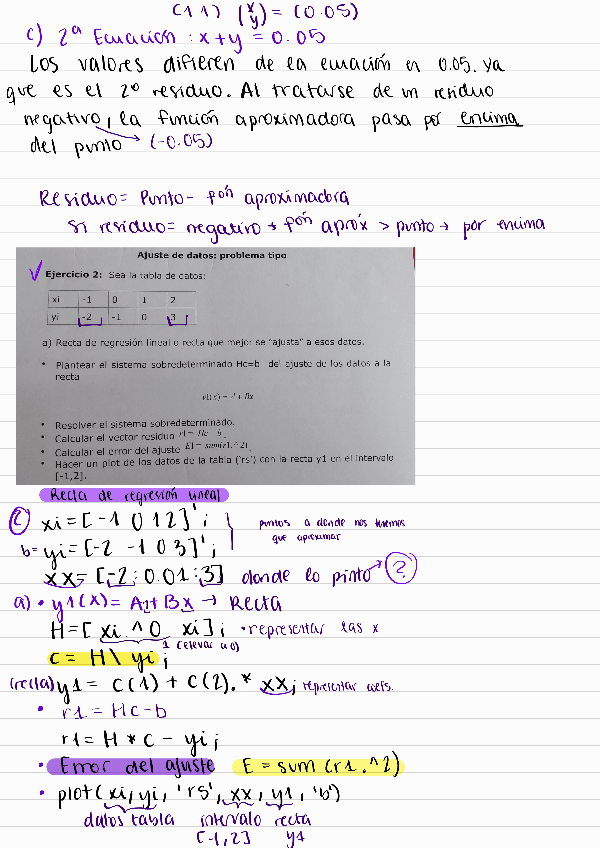 (1 1) (x y) = (0.05)
c) 2ª Ecuación : x+y = 0.05
Los valores difieren de la ecuación en 0.05. ya
que es el 2º residuo. Al tratarse de un residuo
negativo, la función aproximadora pasa por encima
del punto (-0.05)
Residuo = Punto - fón aproximadora
Si residuo = negativo → fón aprox > punto → por encima
Ajuste de datos: problema tipo
Ejercicio 2: Sea la tabla de datos:
xi -1 0 1 2
yi -2 -1 0 3
a) Recta de regresión lineal o recta que mejor se "ajusta" a esos datos.
• Plantear el sistema sobredeterminado Hc=b del ajuste de los datos a la
recta
y1(x) = A + Bx
• Resolver el sistema sobredeterminado.
• Calcular el vector residuo r1 = Hc - b.
• Calcular el error del ajuste E1 = sum(r1.^2).
• Hacer un plot de los datos de la tabla ('rs') con la recta y1 en el intervalo
[-1,2].
Recta de regresión lineal
xi = [-1 0 1 2]';
b= yi = [-2 -1 0 3]';
puntos a donde nos tenemos
que aproximar
xx = [-2 : 0.01 : 3] donde lo pinto → ?
a) • y1(x) = A1 + Bx → Recta
H = [xi.^0 xi]; • representar las x
1 (elevar a 0)
c = H\ yi;
(recta) y1 = c(1) + c(2).* xx; representar coefs.
• r1 = Hc - b
r1 = H * c - yi;
• Error del ajuste E = sum (r1.^2)
• plot( xi, yi, 'rs', xx, y1, 'b')
datos tabla intervalo recta
[-1,2] y1